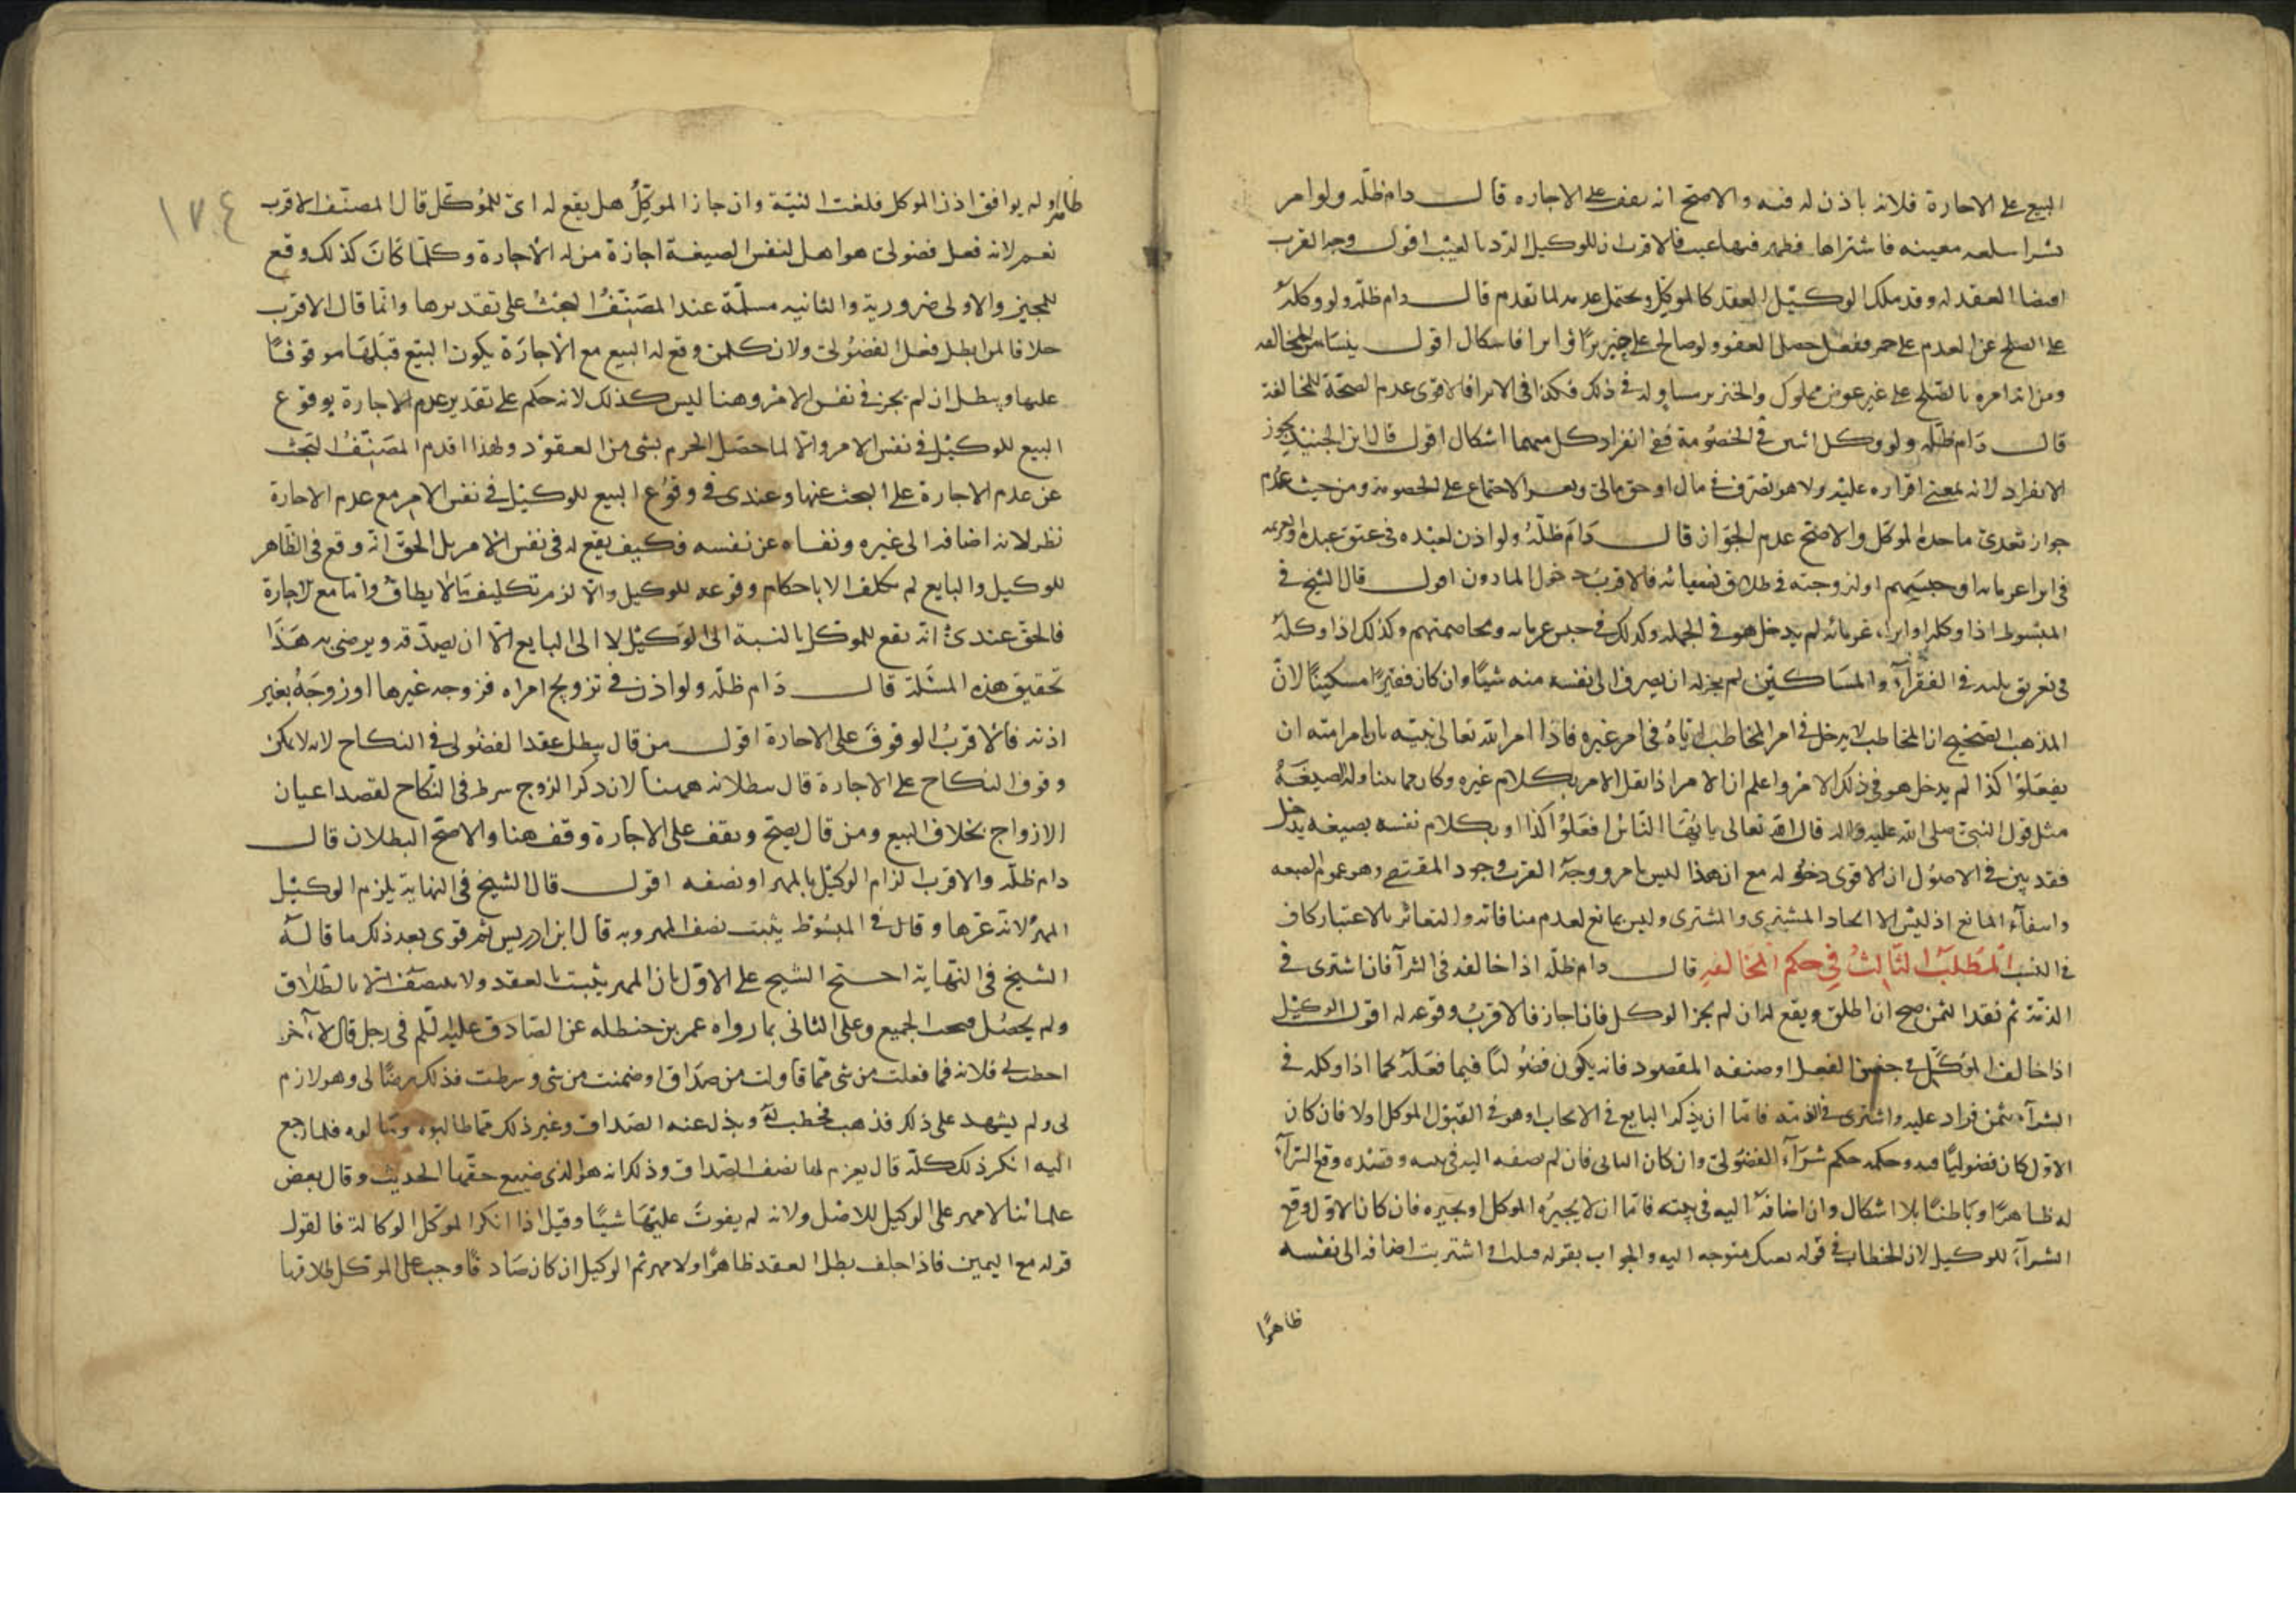 البيع على الاجارة فلانه باذن له فيه والاصح انه يقف على الاجاره قال دام ظله ولو امر
بشرا سلعه معينه فاشتراها فظهر فيها عيب فالاقرب ان للوكيل الرد بالعيب اقول وجه القرب
امضا العقد له وقد ملك الوكيل العقد كالموكل ويحتمل عدمه لما تقدم قال دام ظله ولو وكله
على الصلح عن الدم على خمر ففعل حصل العفو ولو صالح على خنزير او ابرا فاشكال اقول ينشا من المخالفه
ومن انه امره بالصلح على غير عوض مملوك والخنزير مساو له في ذلك فكذا في الابرا فالاقوى عدم الصحة للمخالفة
قال دام ظله ولو وكل اثنين في الخصومة ففي انفراد كل منهما اشكال اقول قال ابن الجنيد يجوز
الانفراد لانه بمعنى اقراره عليه ولا هو تصرف في مال او حق مالي ويعسر الاجتماع على الخصومة ومن حيث عدم
جواز تعدي ما حده الموكل والاصح عدم الجواز قال دام ظله ولو اذن لعبده في عتق عبيده او لغريمه
في ابرا غرمائه او حبسهم او لزوجته في طلاق نسائه فالاقرب دخول الماذون اقول قال الشيخ في
المبسوط اذا وكله او ابراء غرمائه لم يدخل هو في الجمله وكذلك في حبس غرمائه ومخاصمتهم وكذلك اذا وكله
في تفريق ثلثه في الفقرآء والمساكين لم يجز له ان يصرف الى نفسه منه شيئا وان كان فقيرا مسكينا لان
المذهب الصحيح ان المخاطب لا يدخل في امر المخاطب اياه في امر غيره فاذا امر الله تعالى نبيه بان يامر امته ان
يفعلوا كذا لم يدخل هو في ذلك الامر واعلم ان الامر اذا نقل الامر بكلام غيره وكان مما يتناوله الصيغة
مثل قول النبي صلى الله عليه واله قال الله تعالى يا ايها الناس افعلوا كذا او بكلام نفسه بصيغه يدخل
فقد بين في الاصول ان الاقوى دخوله مع ان هذا ليس بامر ووجه القرب وجود المقتضي وهو عموم الصيغه
وانتفاء المانع اذ ليس الا اتحاد المشتري والمشترى وليس بمانع لعدم منافاته والتغاير بالاعتبار كاف
في النسب المطلب الثالث في حكم المخالفه قال دام ظله اذا خالفه في الشرآ فان اشترى في
الذمة ثم نقد الثمن صح ان اطلق ويقع له ان لم يجز الموكل فان اجاز فالاقرب وقوعه له اقول الوكيل
اذا خالف الموكل في جنس الفعل او صنفه المقصود فانه يكون فضوليا فيما فعله كما اذا وكله في
الشرآء بثمن فزاد عليه واشترى في الذمه فاما ان يذكر البايع في الايجاب او هو في القبول الموكل او لا فان كان
الاول كان فضوليا فيه وحكمه حكم شرآء الفضولي وان كان الثاني فان لم يضفه اليه في نيته وقصده وقع الشرآء
له ظاهرا وباطنا بلا اشكال وان اضافه اليه في نيته فاما ان لا يجيزه الموكل او يجيزه فان كان الاول وقع
الشرآء للوكيل لان الخطاب في قوله بعتك متوجه اليه والجواب بقوله قبلت او اشتريت اضافه الى نفسه
ظاهرا
١٧٤
ظاهرا ولم يوافق اذن الموكل فلغت النية وان جاز الموكل هل يقع له اي للموكل قال المصنف الاقرب
نعم لانه فعل فضولي هو اهل لنفس الصيغة اجازة من له الاجارة وكلما كان كذلك وقع
للمجيز والاولى ضرورية والثانيه مسلمة عند المصنف البحث على تقديرها وانما قال الاقرب
خلافا لمن ابطل فعل الفضولي ولان كلمن وقع له البيع مع الاجازة يكون البيع قبلها موقوفا
عليها ويبطل ان لم يجز في نفس الامر وهنا ليس كذلك لانه حكم على تقدير عدم الاجازة بوقوع
البيع للوكيل في نفس الامر والا لما حصل الجزم بشى من العقود ولهذا اقدم المصنف لبحث
عن عدم الاجارة على البحث عنها وعندى في وقوع البيع للوكيل في نفس الامر مع عدم الاجازة
نظر لانه اضافه الى غيره ونفاه عن نفسه فكيف يقع له في نفس الامر بل الحق انه وقع في الظاهر
للوكيل والبايع لم يكلف الا باحكام وقوعه للوكيل والا لزم تكليف ما لا يطاق واما مع الاجازة
فالحق عندي انه يقع للموكل بالنسبة الى الوكيل لا الى البايع الا ان يصدقه ويرضى به هذا
تحقيق هذه المسئلة قال دام ظله ولو اذن في تزويج امراه فزوجه غيرها او زوجه بغير
اذنه فالاقرب الوقوف على الاجازة اقول من قال يبطل عقد الفضولى في النكاح لانه لا يمكن
وقوف النكاح على الاجازة قال ببطلانه ههنا لان ذكر الزوج شرط في النكاح لقصد اعيان
الازواج بخلاف البيع ومن قال يصح ويقف على الاجازة وقف هنا والاصح البطلان قال
دام ظله والاقرب الزام الوكيل بالمهر او نصفه اقول قال الشيخ في النهاية يلزم الوكيل
المهر لانه غرها وقال في المبسوط يثبت نصف المهر وبه قال ابن ادريس ثم قوى بعد ذلك ما قاله
الشيخ في النهاية احتج الشيخ على الاول بان المهر يثبت بالعقد ولا ينتصف الا بالطلاق
ولم يحصل فيجب الجميع وعلى الثاني بما رواه عمر بن حنظله عن الصادق عليه السلم في رجل قال لآخر
اخطب لي فلانه فما فعلت من شى مما قاولت من صداق او ضمنت من شى وشرطت فذلك رضا لى وهو لازم
لى ولم يشهد على ذلك فذهب فخطب له وبذل عنه الصداق وغير ذلك مما طالبوه وسالوه فلما رجع
اليه انكر ذلك كله قال يغرم لها نصف الصداق وذلك انه هو الذى ضيع حقها الحديث وقال بعض
علمائنا لا مهر على الوكيل للاصل ولانه لم يفوت عليها شيئا وقيل اذا انكر الموكل الوكالة فالقول
قوله مع اليمين فاذا حلف بطل العقد ظاهرا ولا مهر ثم الوكيل ان كان صادقا وجب على الموكل طلاقها